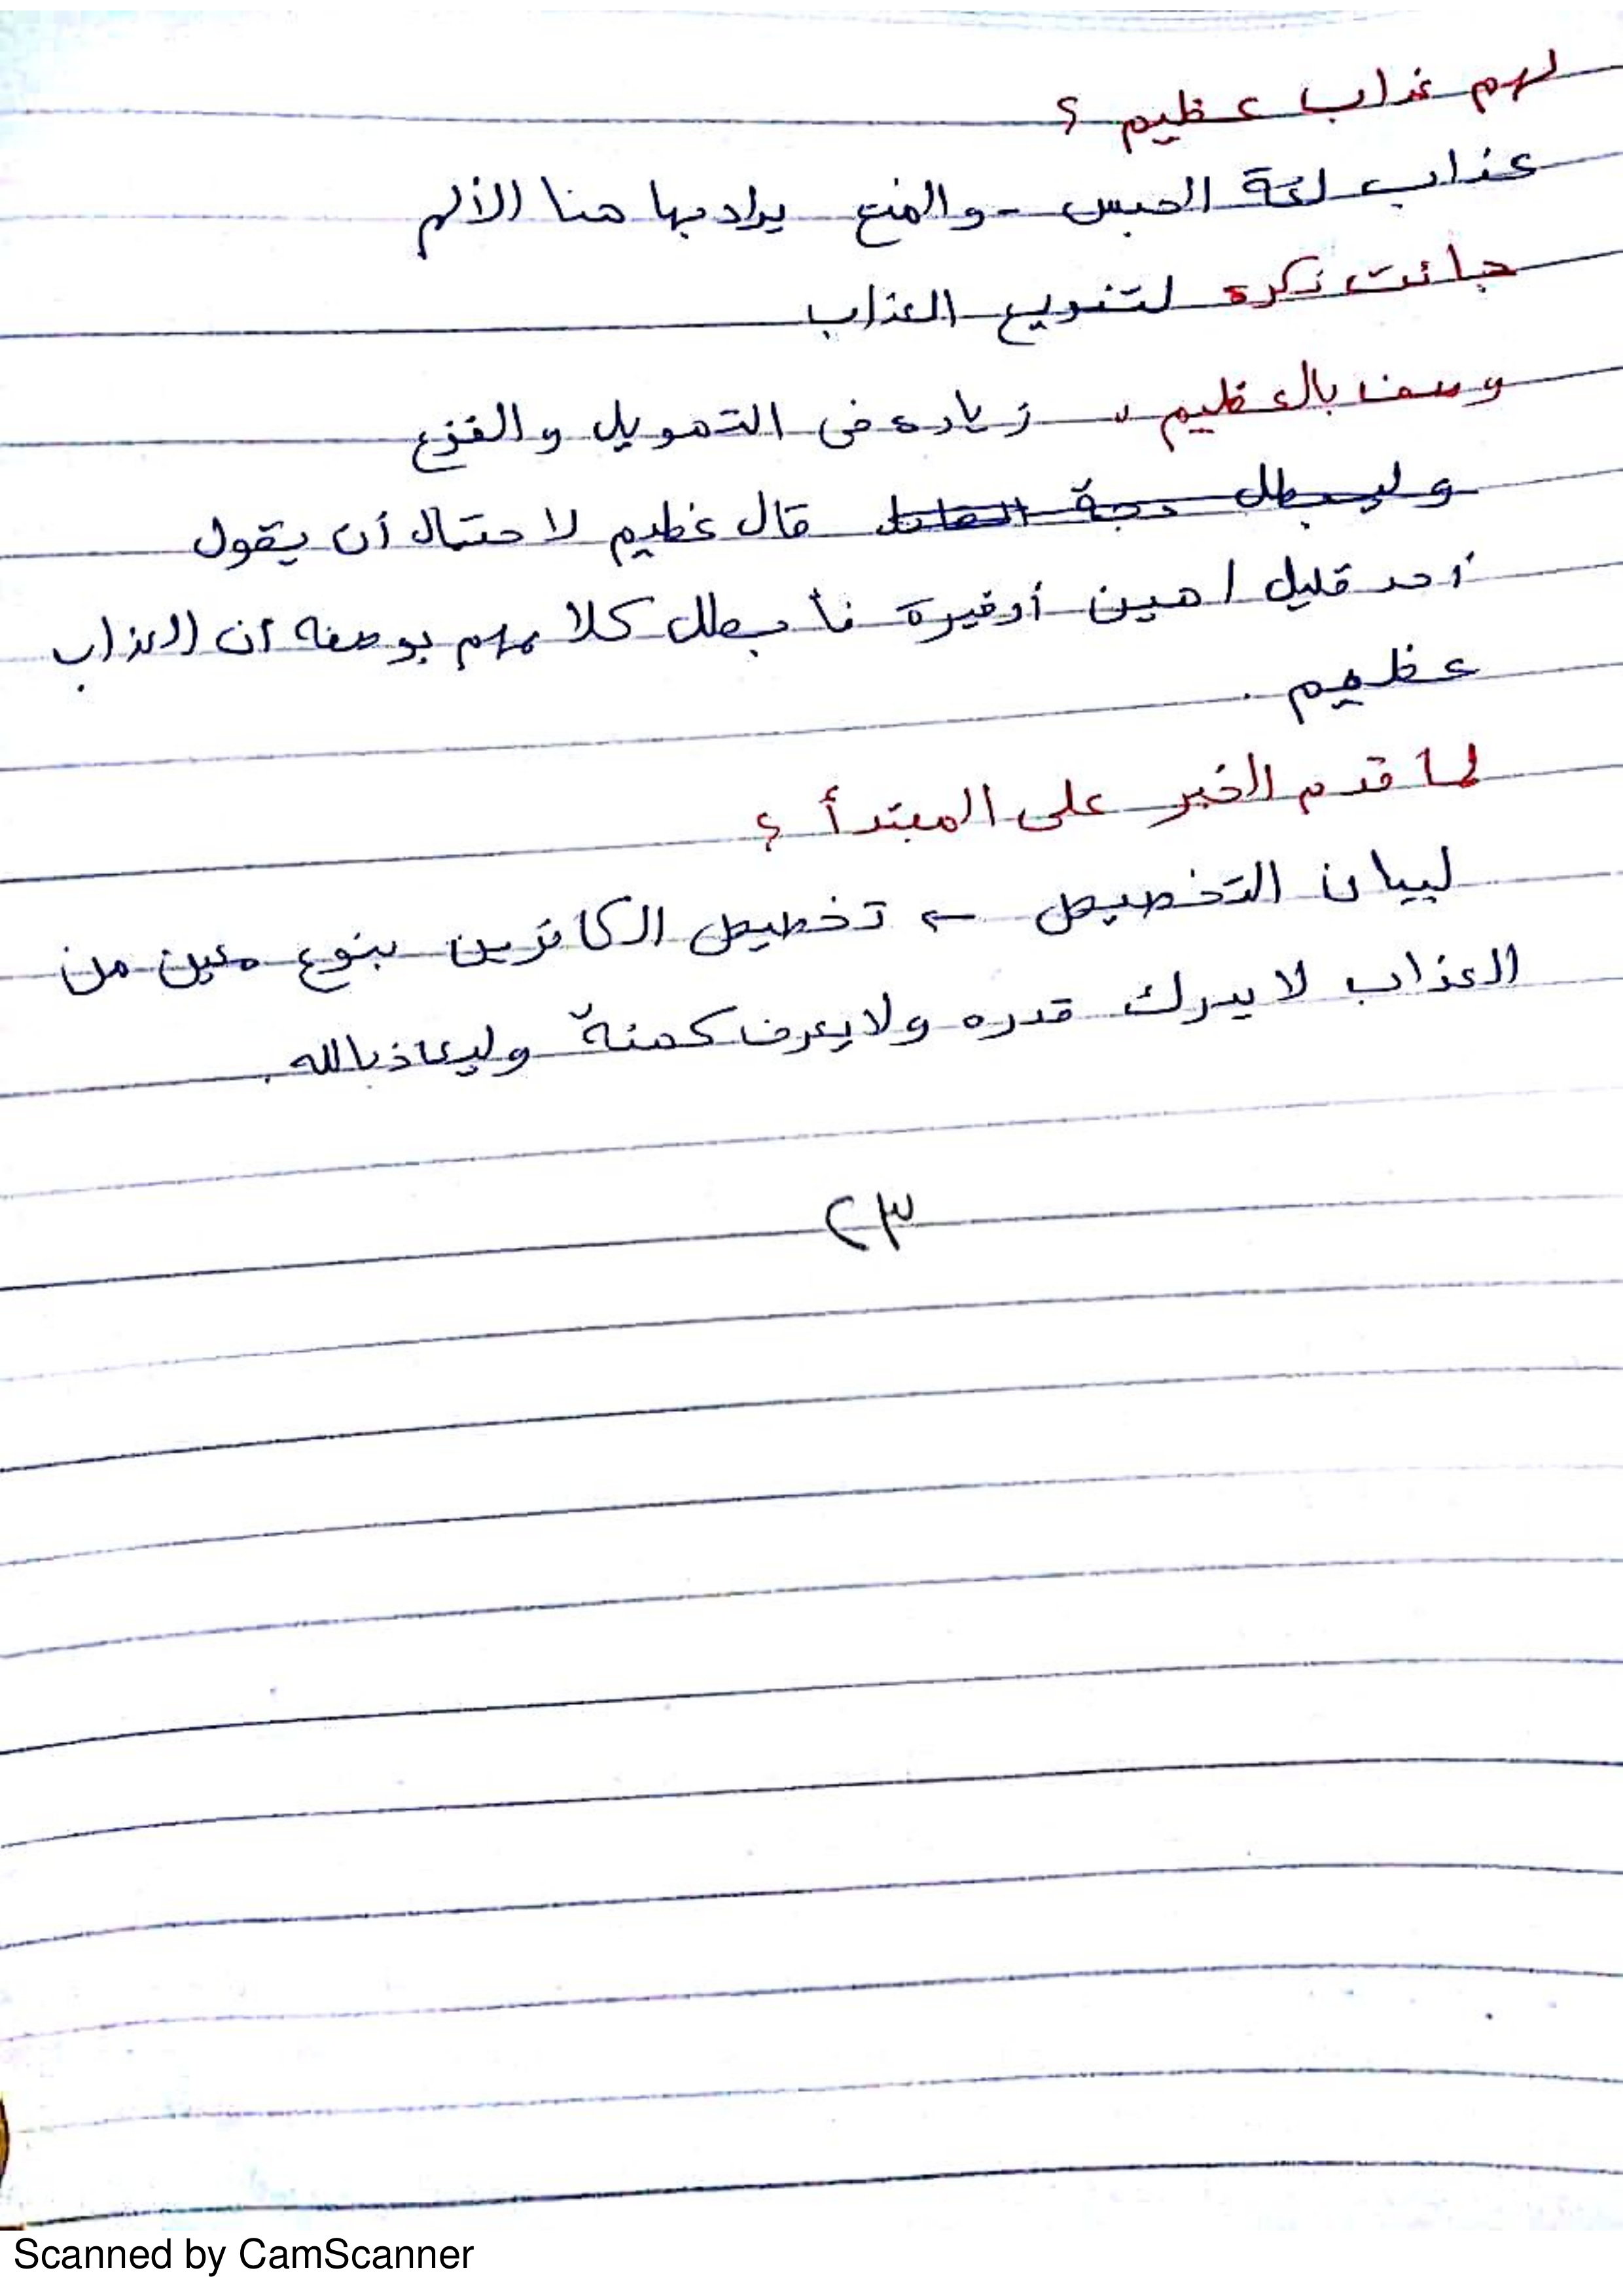 لهم عذاب عظيم ؟
عذاب لغة الحبس - والمنع يراد بها هنا الألم
جائت نكره لتنويع العذاب
وصف بالعظيم زياده فى التهويل والفزع
وليبطل حجة القائل قال عظيم لاحتمال أن يقول
أحد قليل اهين أوغيرة فأبطل كلامهم بوصفه ان العذاب
عظيم .
لما قدم الخبر على المبتدأ ؟
لبيان التخصيص ← تخصيص الكافرين بنوع معين من
العذاب لا يدرك قدره ولا يعرف كهنة وليعاذ بالله .
٢٣
Scanned by CamScanner